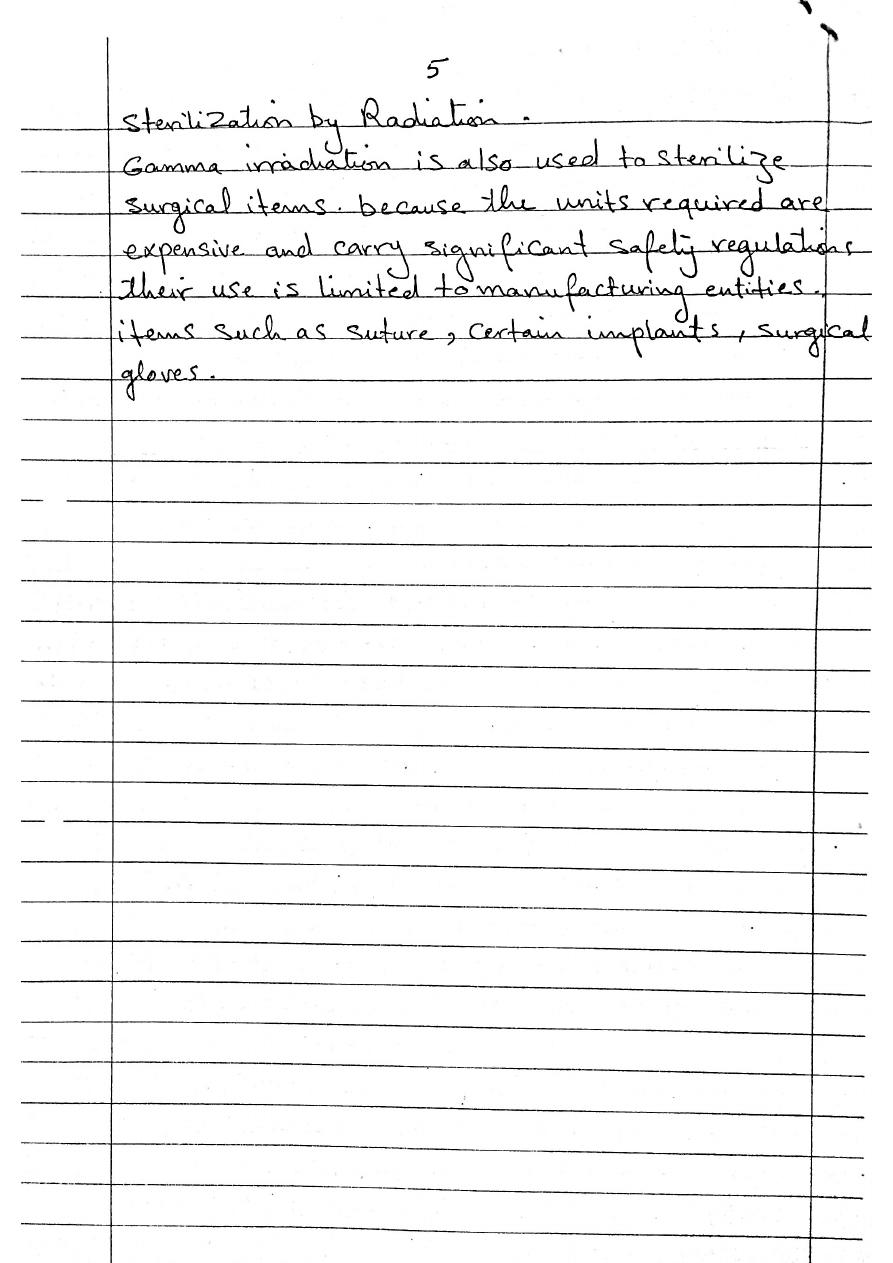 5
Sterilization by Radiation.
Gamma irradiation is also used to sterilize
surgical items. because the units required are
expensive and carry significant safety regulations
their use is limited to manufacturing entities.
items such as suture, certain implants, surgical
gloves.